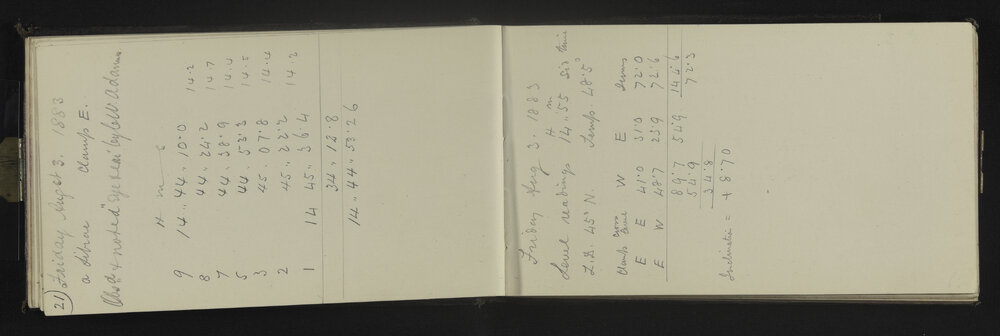 21) Friday Augst 3. 1883
a Librae Clamp E.
Obsd & noted "Eye & ear" by C W Adams.
H m s
9 14 .. 44 .. 10.0 14.2
8 44 .. 24.2 14.7
7 44 . 38.9 14.4
5 44 . 53.3 14.5
3 45 . 07.8 14.4
2 45 .. 22.2 14.2
1 14 45 .. 36.4
34 .. 12.8
14 .. 44 .. 53.26
Friday Aug 3. 1883
H m
Level readings 14 .. 55 Sid time
L.D. 45° N. Temp. 48.5°
Clamp Cross W E Sums
E E 41.0 31.0 72.0
E W 48.7 23.9 72.6
89.7 54.9 144.6
54.9 72.3
34.8
Inclination = + 8.70